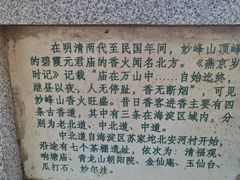 在明清两代至民国年间，妙峰山顶峰
的碧霞元君庙的香火闻名北方。《燕京岁
时记》记载“庙在万山中……自始迄终，
继昼以夜，人无停趾，香无断烟”，可见
妙峰山香火旺盛。昔日香客进香主要有四
条古香道，其中有三条在海淀区域内，分
别为老北道、中北道、中道。
中北道自海淀区苏家坨北安河村开始，
沿途有七个茶棚遗址，依次为：清福观、
响塘庙、青龙山朝阳院、金仙庵、玉仙台、
瓜打石、妙尔洼。